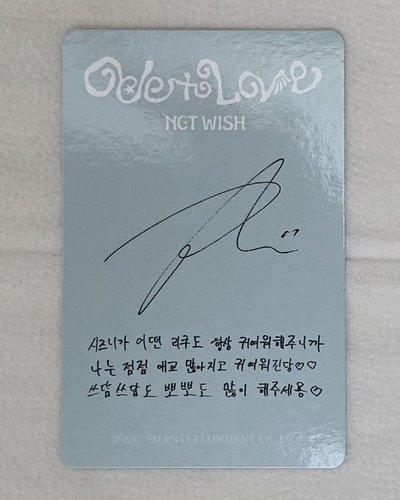 Ode to Love
NCT WISH
시즈니가 어떤 리쿠도 항상 귀여워해주니까
나는 점점 애교 많아지고 귀여워진당♡♡
쓰담쓰담도 뽀뽀도 많이 해주세용♡
(P&C) SM ENTERTAINMENT Co., Ltd.